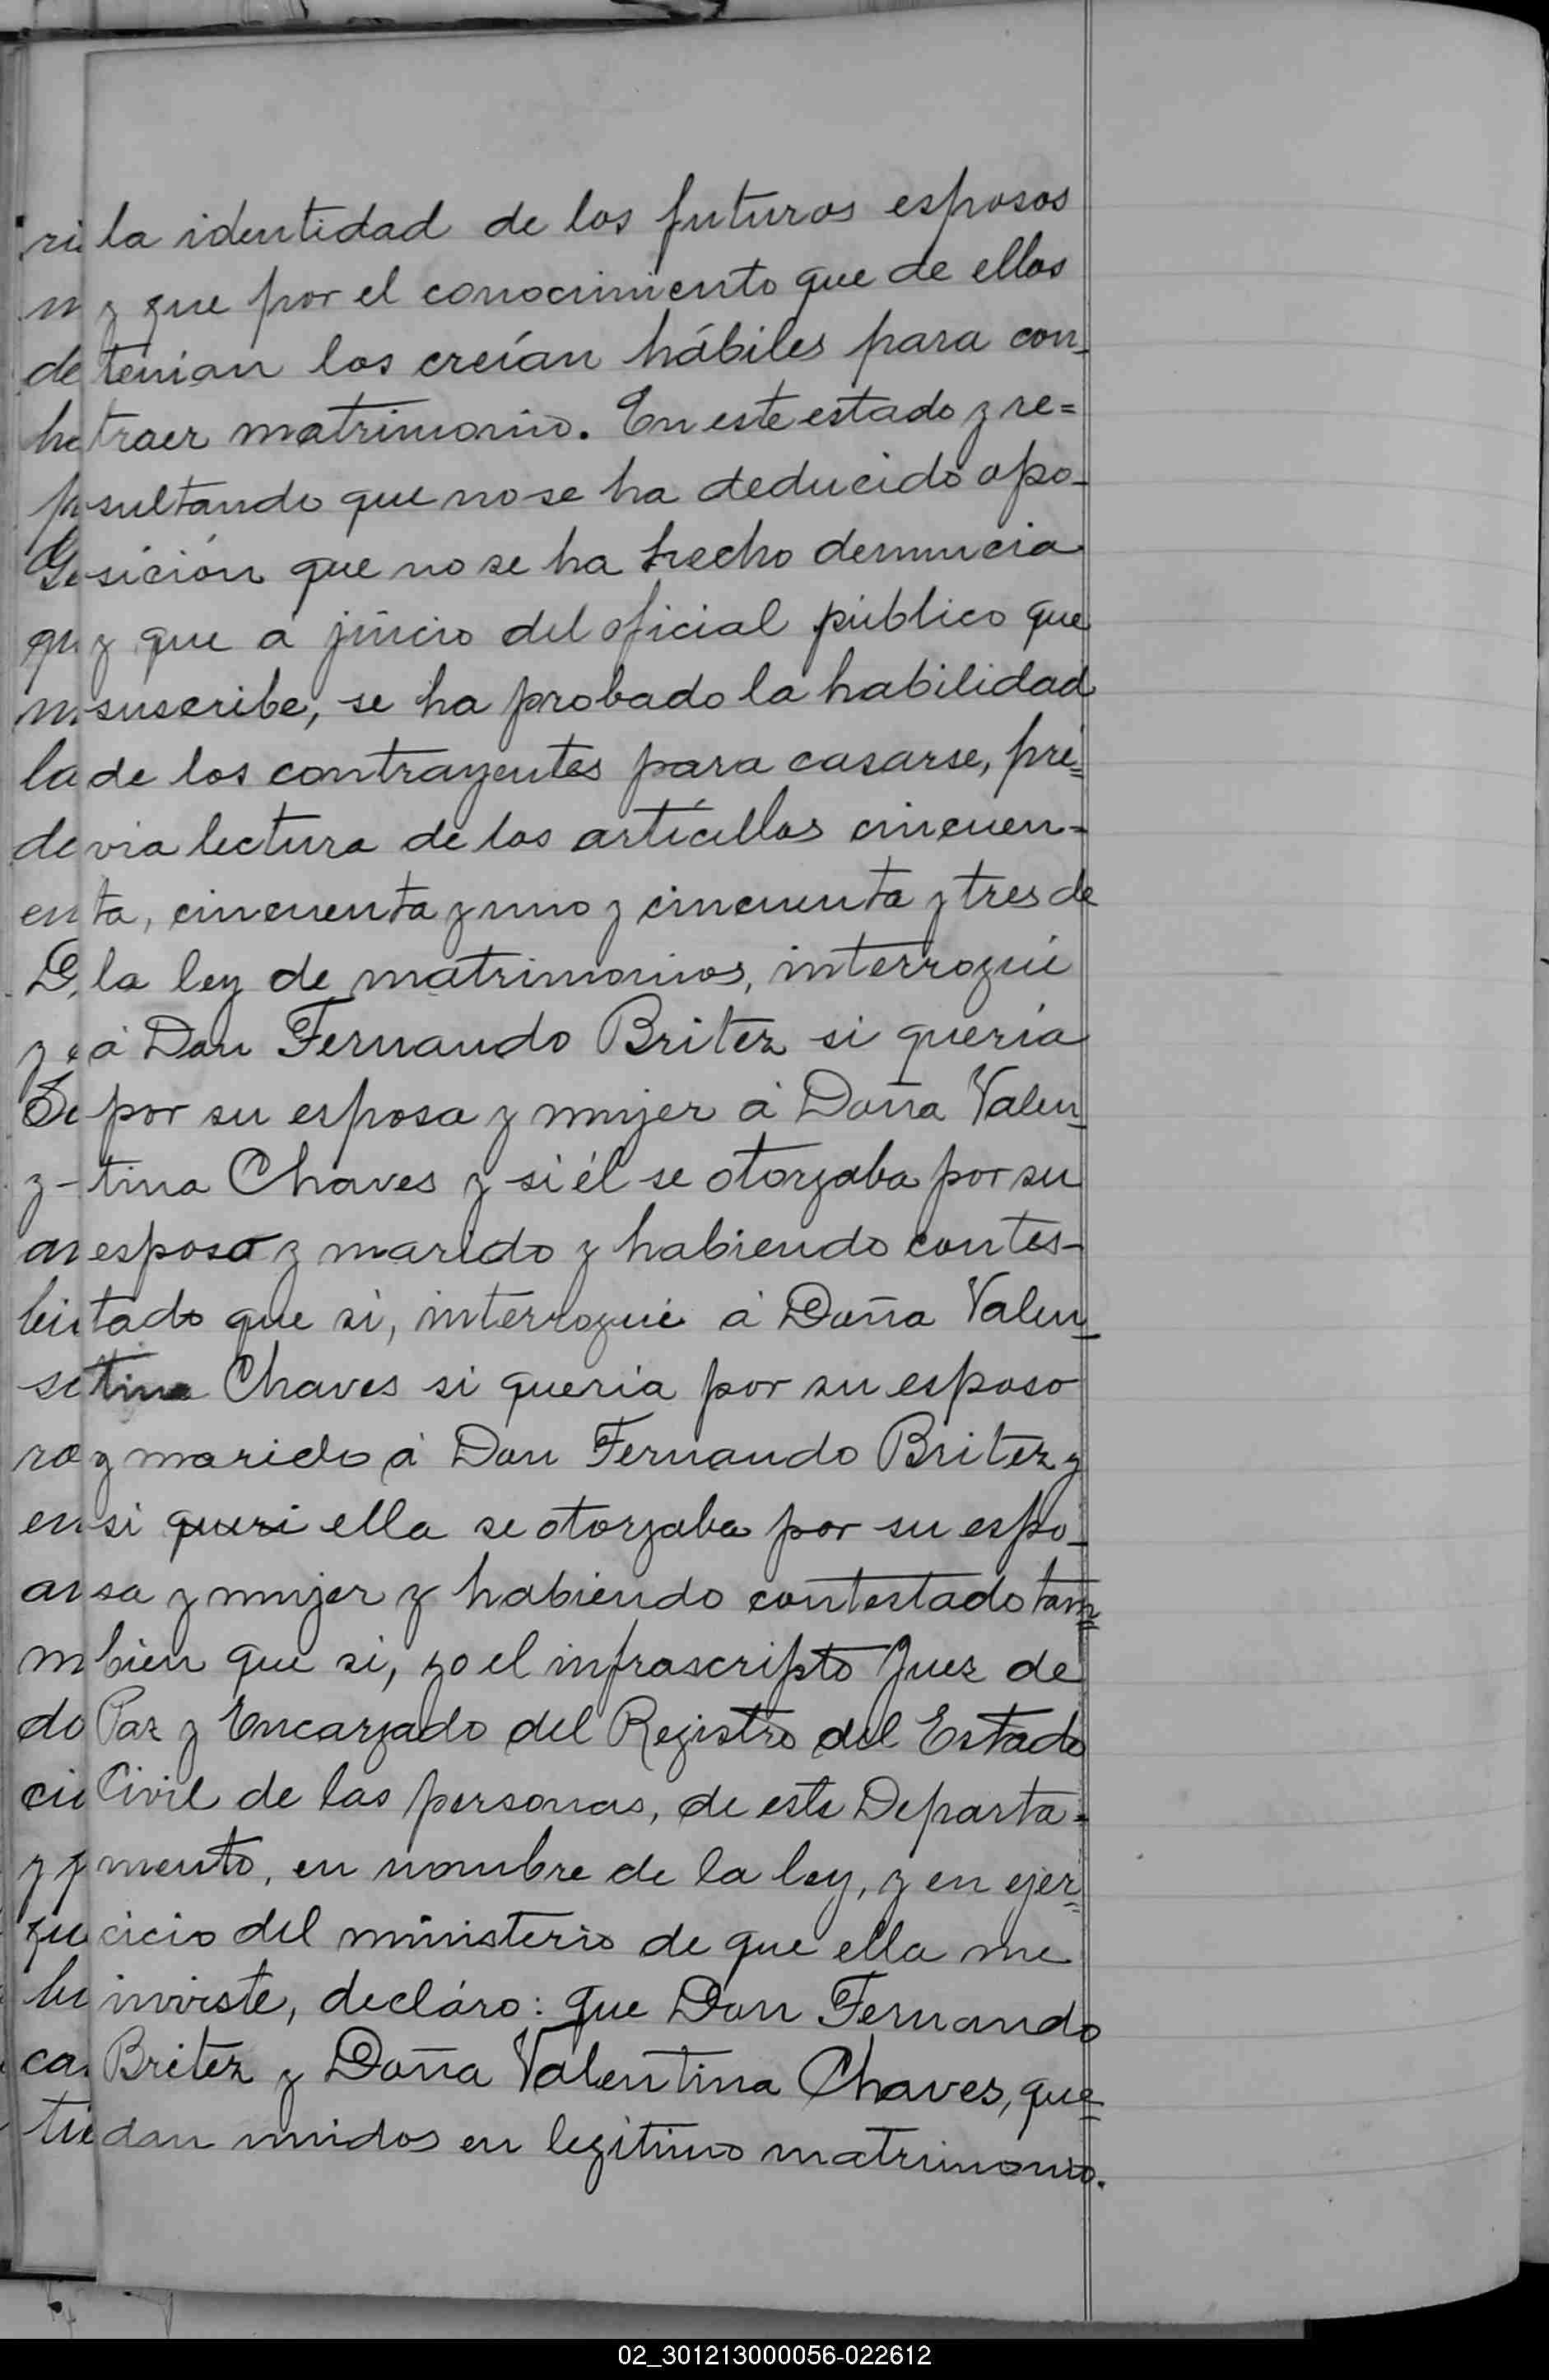 la identidad de los futuros esposos
y que por el conocimiento que de ellos
tenian los creían hábiles para con-
traer matrimonio. En este estado y re=
sultando que no se ha deducido opo-
sición que no se ha hecho denuncia
y que á juicio del oficial público que
suscribe, se ha probado la habilidad
de los contrayentes para casarse, pré=
via lectura de los artícullos cincuen-
ta, cincuenta y uno y cincuenta y tres de
la ley de matrimonios, interrogué
á Don Fernando Britez si queria
por su esposa y mujer á Doña Valen-
tina Chaves y si él se otorgaba por su
esposo y marido y habiendo contes-
tado que si, interrogué á Doña Valen-
tina Chaves si queria por su esposo
y marido á Don Fernando Britez y
si queri ella se otorgaba por su espo-
sa y mujer y habiendo contestado tam=
bien que si, yo el infrascripto Juez de
Paz y Encargado del Registro del Estado
Civil de las personas, de este Departa-
mento, en nombre de la ley, y en ejer=
cicio del ministerio de que ella me
inviste, decláro: que Don Fernando
Britez y Doña Valentina Chaves, que=
dan unidos en legítimo matrimonio.
02_301213000056-022612